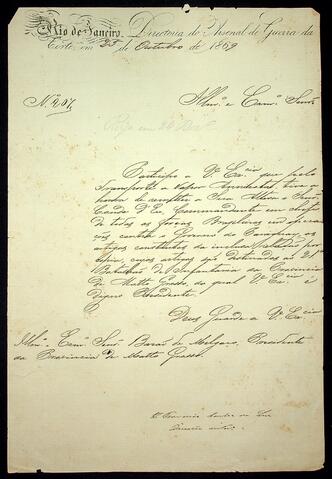 Rio de Janeiro. Directoria do Arsenal de Guerra da
Côrte, em 23 de Outubro de 1869
N.º 207.
Illm.º e Exm.º Senr.
Participo a V.ª Ex.cia que pelo
transporte a vapor tive a
honra de remetter a Sua Alteza o Senr.
Conde d'Eu, Commandante em chefe
de todas as forças Brasileiras em opera-
ções contra o Governo do Paraguay, os
artigos constantes da inclusa relação por
copia, cujos artigos são destinados ao 21º
Batalhão de Infantaria da Provincia
de Matto Grosso, da qual V.ª Ex.cia é
Digno Presidente.
Deus Guarde a V.ª Ex.cia
Illm.º e Exm.º Senr. Barão de Melgaço, Presidente
da Provincia de Matto Grosso.
Director